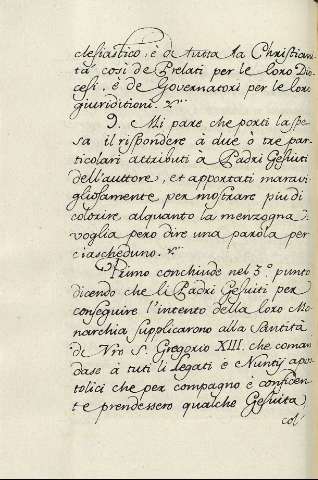 clesiastico, è di tutta la Christiani
tà così de Prelati per le loro Dio
cesi, è de Governatori per le loro
giuriditioni.
9. Mi pare che porti la spe
sa il rispondere à due ò tre par
ticolari attributi à Padri Gesuiti
dell'auttore, et apportati maravi
gliosamente per mostrare piu di
colorire alquanto la menzogna
voglia pero dire una parola per
ciascheduno.
Primo conchiude nel 3º punto
dicendo che li Padri Gesuiti per
conseguire l'intento della loro Mo
narchia supplicarono alla Santità
di Nro S. Gregorio XIII. che coman
dase à tuti li legati è Nuntij apo
tolici che per compagno è confiden
te prendessero qualche Gesuita,
col